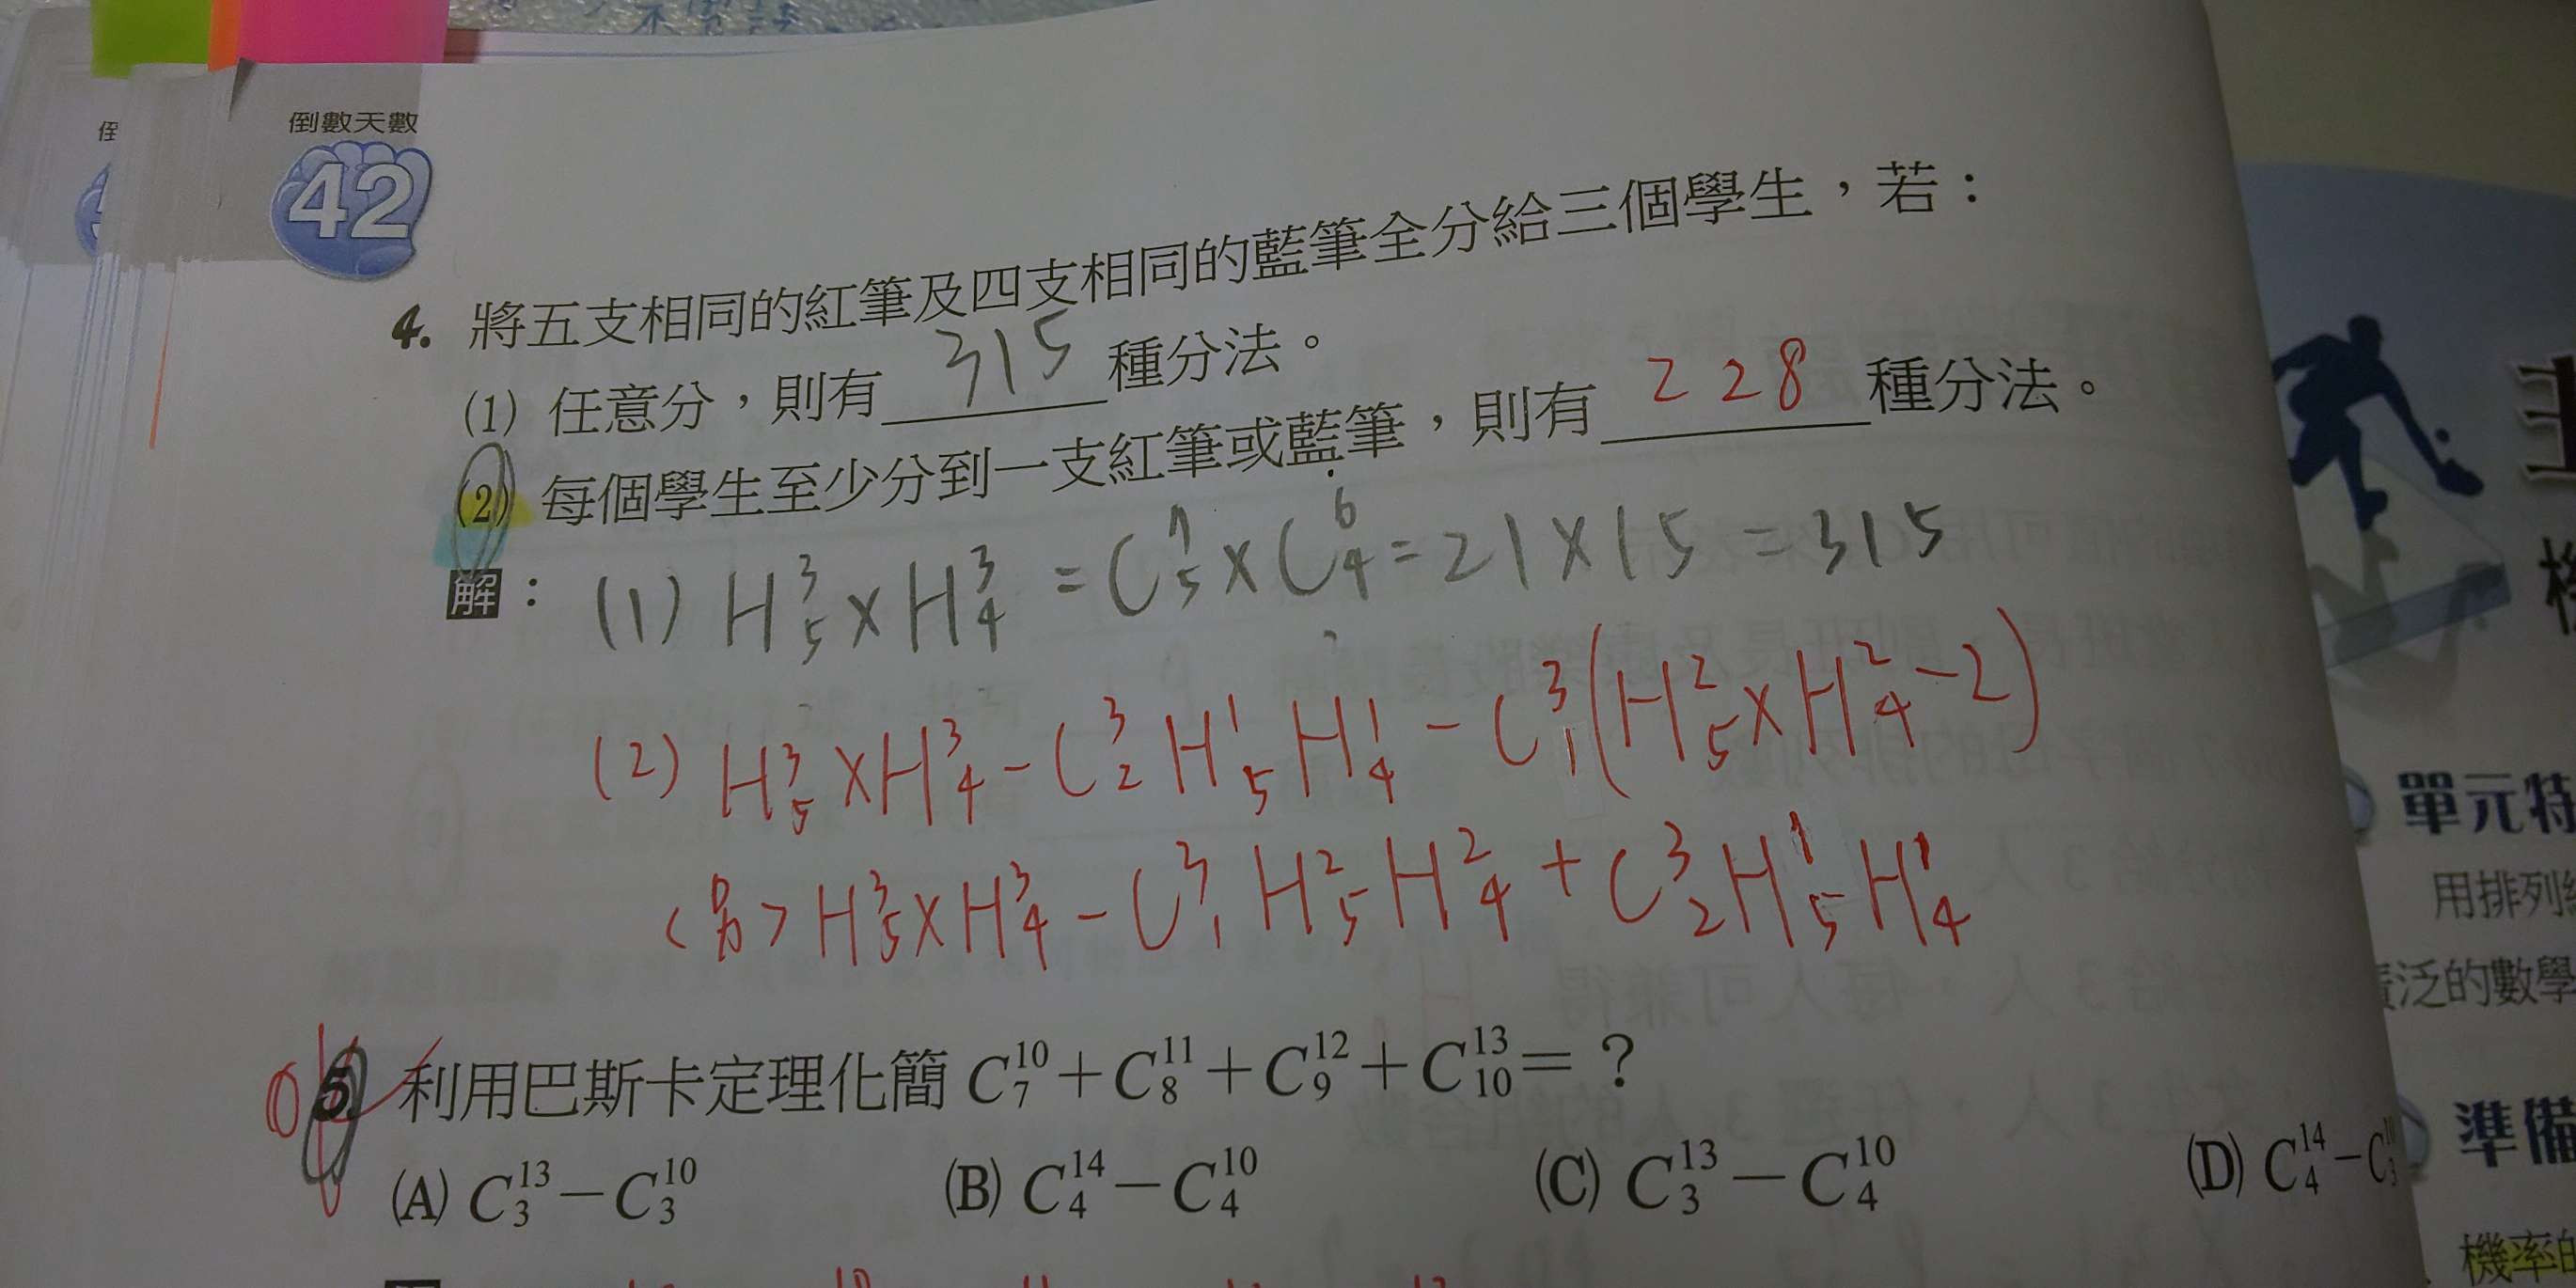 倒數天數
42
4. 將五支相同的紅筆及四支相同的藍筆全分給三個學生，若：
(1) 任意分，則有 315 種分法。
(2) 每個學生至少分到一支紅筆或藍筆，則有 228 種分法。
解：(1) H³₅×H³₄ = C⁷₅×C⁶₄ = 21×15 = 315
(2) H³₅×H³₄ − C³₂H¹₅H¹₄ − C³₁(H²₅×H²₄−2)
<另> H³₅×H³₄ − C³₁H²₅H²₄ + C³₂H¹₅H¹₄
5. 利用巴斯卡定理化簡 C¹⁰₇+C¹¹₈+C¹²₉+C¹³₁₀=？
(A) C¹³₃−C¹⁰₃ (B) C¹⁴₄−C¹⁰₄ (C) C¹³₃−C¹⁰₄ (D) C¹⁴₄−C
單元特
用排列
泛的數學
準備
機率的